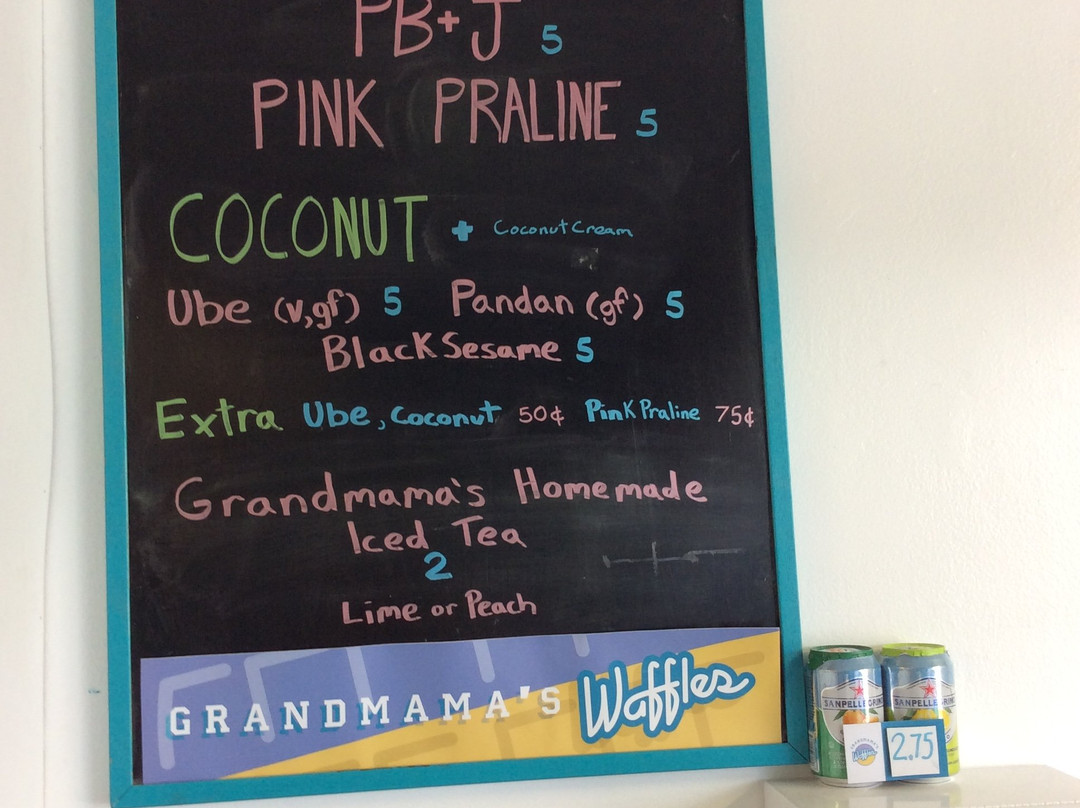 PB+J 5
PINK PRALINE 5
COCONUT + Coconut Cream
Ube (v,gf) 5 Pandan (gf) 5
Black Sesame 5
Extra Ube, Coconut 50¢ Pink Praline 75¢
Grandmama's Homemade
Iced Tea
2
Lime or Peach
GRANDMAMA'S Waffles
SANPELLEGRINO SANPELLEGRINO
2.75